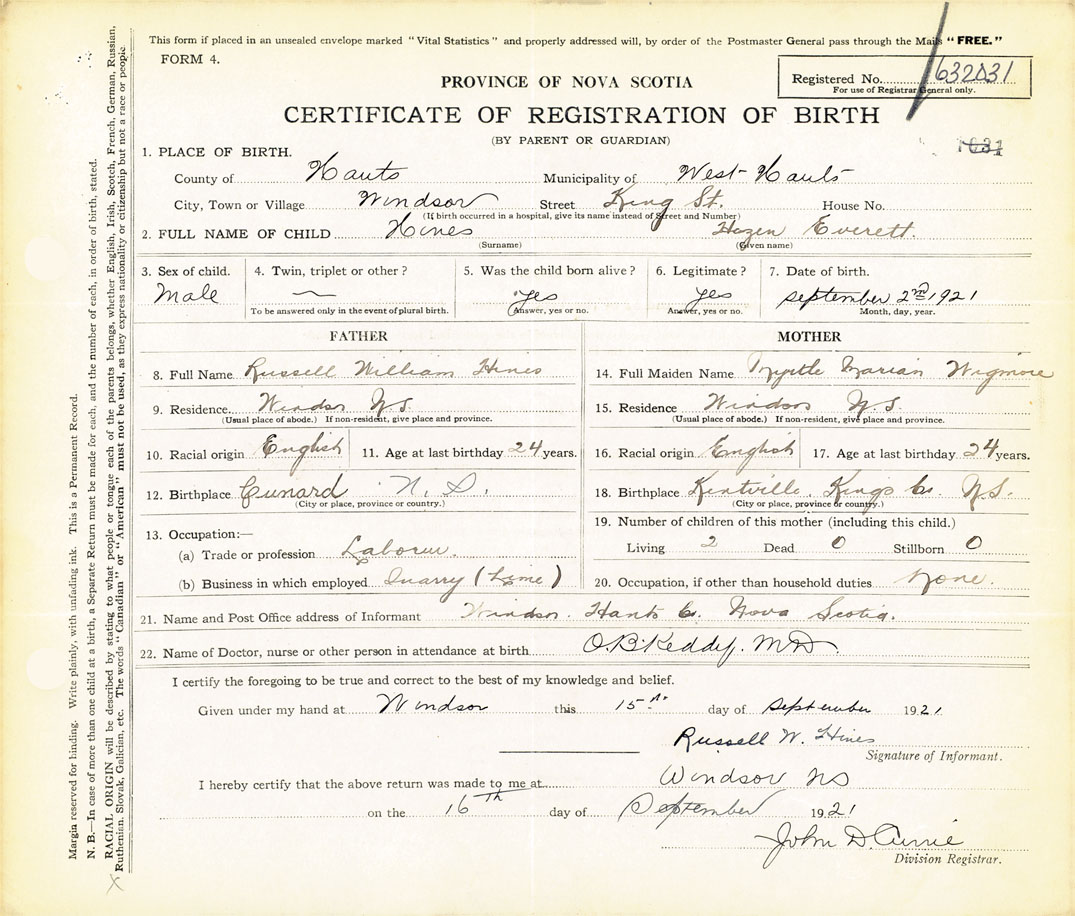 This form if placed in an unsealed envelope marked "Vital Statistics" and properly addressed will, by order of the Postmaster General pass through the Mails "FREE."
FORM 4.
Registered No. 632031
For use of Registrar General only.
PROVINCE OF NOVA SCOTIA
CERTIFICATE OF REGISTRATION OF BIRTH
(BY PARENT OR GUARDIAN)
1031
1. PLACE OF BIRTH.
County of Hants Municipality of West Hants
City, Town or Village Windsor Street King St. House No.
(If birth occurred in a hospital, give its name instead of Street and Number)
2. FULL NAME OF CHILD Hines Hazen Everett.
(Surname) (Given name)
3. Sex of child. 4. Twin, triplet or other? 5. Was the child born alive? 6. Legitimate? 7. Date of birth.
Male — yes yes september 2nd 1921
To be answered only in the event of plural birth. (Answer, yes or no. Answer, yes or no. Month, day, year.
FATHER MOTHER
8. Full Name Russell William Hines 14. Full Maiden Name Myrtle Marian Wigmore
9. Residence Windsor N.S. 15. Residence Windsor N.S.
(Usual place of abode.) If non-resident, give place and province. (Usual place of abode.) If non-resident, give place and province.
10. Racial origin English 11. Age at last birthday 24 years. 16. Racial origin English 17. Age at last birthday 24 years.
12. Birthplace Cunard N.S. 18. Birthplace Kentville, Kings Co. N.S.
(City or place, province or country.) (City or place, province or country.)
13. Occupation:— 19. Number of children of this mother (including this child.)
(a) Trade or profession Laborer. Living 2 Dead 0 Stillborn 0
(b) Business in which employed Quarry (Lime) 20. Occupation, if other than household duties None.
21. Name and Post Office address of Informant Windsor. Hants Co. Nova Scotia.
22. Name of Doctor, nurse or other person in attendance at birth O.B. Keddy. M.D.
I certify the foregoing to be true and correct to the best of my knowledge and belief.
Given under my hand at Windsor this 15th day of september 1921
Russell W. Hines
Signature of Informant.
I hereby certify that the above return was made to me at Windsor NS
on the 16TH day of September 1921
John D. Currie
Division Registrar.
Margin reserved for binding. Write plainly, with unfading ink. This is a Permanent Record.
N. B.—In case of more than one child at a birth, a Separate Return must be made for each, and the number of each, in order of birth, stated.
RACIAL ORIGIN will be described by stating to what people or tongue each of the parents belongs, whether English, Irish, Scotch, French, German, Russian,
Ruthenian, Slovak, Galician, etc. The words "Canadian" or "American" must not be used, as they express nationality or citizenship but not a race or people.
X